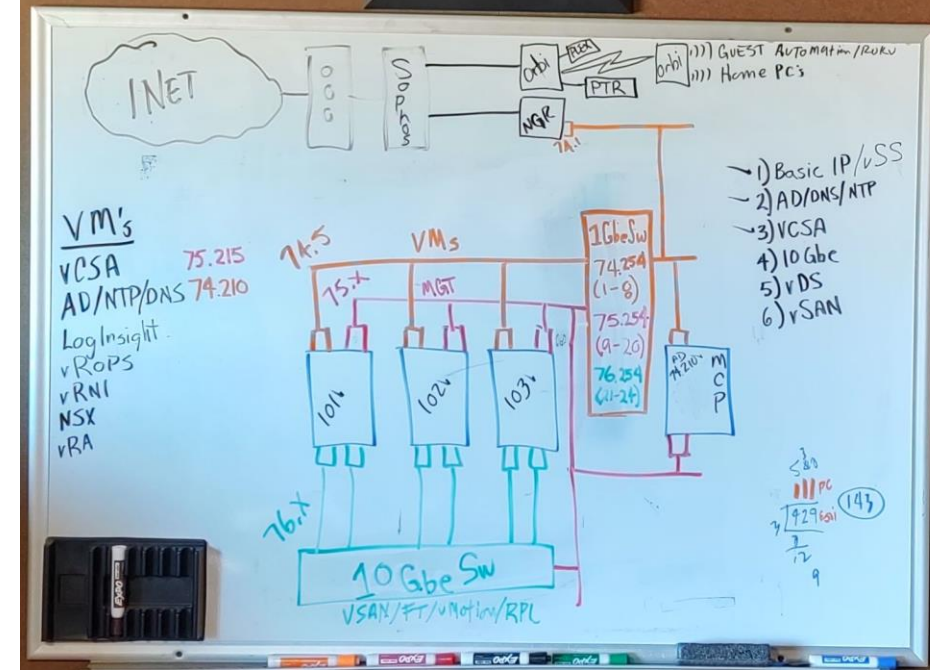 INET
orbi
PTR
orbi
)))) GUEST AUTOMATION/ROKU
)))) Home PC's
NGR
74.1
1) Basic IP/vSS
2) AD/DNS/NTP
3) VCSA
4) 10 Gbe
5) vDS
6) vSAN
VM's
vCSA 75.215
AD/NTP/DNS 74.210
Log Insight.
vROPS
vRNI
NSX
vRA
74.5
VMs
75.x
MGT
1GbeSw
74.254
(1-8)
75.254
(9-20)
76.254
(21-24)
101
102
103
AD
74.210
MCP
76.x
10 Gbe Sw
VSAN/FT/vMotion/RPL
PC
3 429
143
12
9